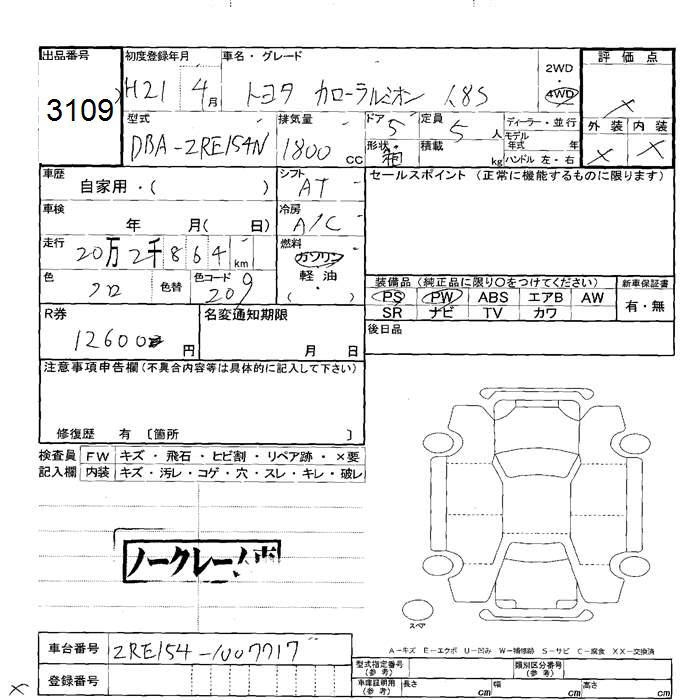 出品番号 初度登録年月 車名・グレード 2WD・4WD 評価点
3109 H21 4月 トヨタ カローラルミオン 1.8S ×
型式 排気量 ドア 5 定員 5人 ディーラー・並行 外装 内装
DBA-ZRE154N 1800cc 形状 箱 積載 kg モデル年式 年 × ×
ハンドル 左・右
車歴 シフト セールスポイント (正常に機能するものに限ります)
自家用・( ) AT
車検 冷房
年 月( 日) A/C
走行 燃料
20万2千864km ガソリン
色 色替 色コード 軽油
クロ 209 ( )
装備品 (純正品に限り○をつけてください) 新車保証書
PS PW ABS エアB AW 有・無
SR ナビ TV カワ
R券 名変通知期限 後日品
円 月 日
注意事項申告欄 (不具合内容等は具体的に記入して下さい)
修復歴 有 〔箇所 〕
検査員 FW キズ・飛石・ヒビ割・リペア跡・×要
記入欄 内装 キズ・汚レ・コゲ・穴・スレ・キレ・破レ
ノークレーム車
スペア
A-キズ E-エクボ U-凹み W-補修跡 S-サビ C-腐食 XX-交換済
車台番号 ZRE154-1007717
型式指定番号 (参考) 類別区分番号 (参考)
× 登録番号
車庫証明用 (参考) 長さ cm 幅 cm 高さ cm